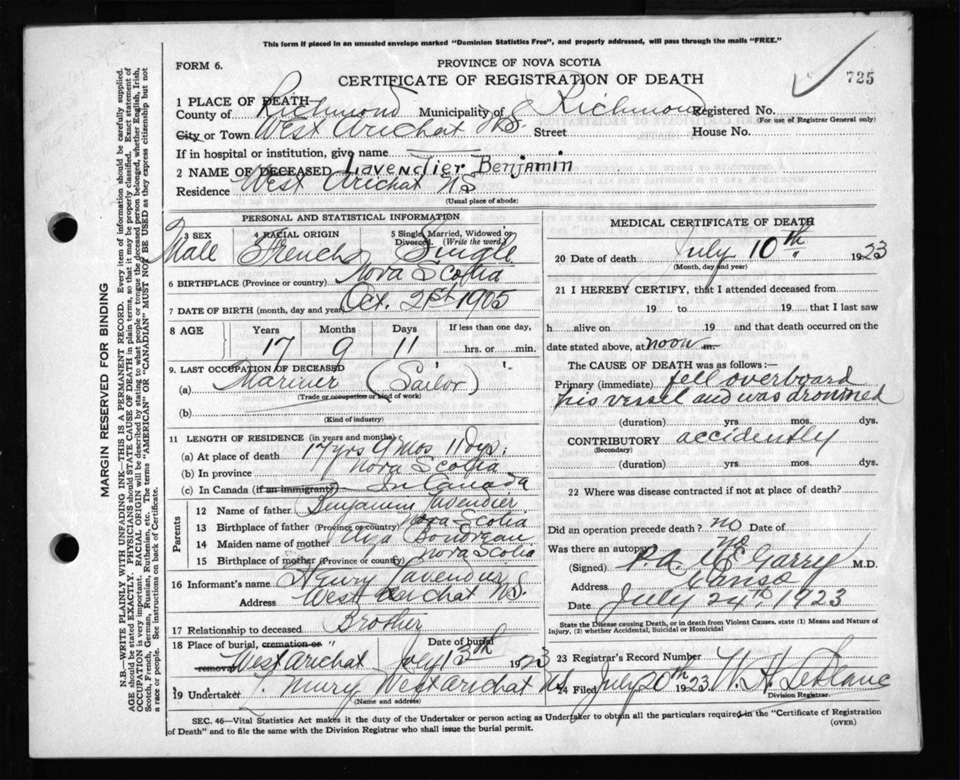 This form if placed in an unsealed envelope marked "Dominion Statistics Free", and properly addressed, will pass through the mails "FREE."
FORM 6.
PROVINCE OF NOVA SCOTIA
CERTIFICATE OF REGISTRATION OF DEATH
725
1 PLACE OF DEATH
County of Richmond Municipality of Richmond Registered No.
(For use of Registrar General only)
City or Town West Arichat N.S. Street House No.
If in hospital or institution, give name
2 NAME OF DECEASED Lavendier Benjamin
Residence West Arichat NS
(Usual place of abode)
PERSONAL AND STATISTICAL INFORMATION
3 SEX 4 RACIAL ORIGIN 5 Single, Married, Widowed or Divorced. (Write the word)
Male French Single
6 BIRTHPLACE (Province or country) Nova Scotia
7 DATE OF BIRTH (month, day and year) Oct. 21st 1905
8 AGE Years Months Days If less than one day,
17 9 11 hrs. or min.
9. LAST OCCUPATION OF DECEASED
(a) Mariner (Sailor)
(Trade or occupation or kind of work)
(b)
(Kind of industry)
11 LENGTH OF RESIDENCE (in years and months)
(a) At place of death 17 yrs 9 Mos 11 Dys.
(b) In province Nova Scotia
(c) In Canada (if an immigrant) In Canada
Parents
12 Name of father Benjamin Lavendier
13 Birthplace of father (Province or country) Nova Scotia
14 Maiden name of mother
15 Birthplace of mother (Province or country) Nova Scotia
16 Informant's name Henry Lavendier
Address West Arichat N.S.
17 Relationship to deceased Brother
18 Place of burial, cremation or removal " Date of burial
West Arichat July 13th 1923
19 Undertaker West Arichat NS
(Name and address)
MEDICAL CERTIFICATE OF DEATH
20 Date of death July 10th 1923
(Month, day and year)
21 I HEREBY CERTIFY, that I attended deceased from
19 to 19 that I last saw
h alive on 19 and that death occurred on
date stated above, at noon m.
The CAUSE OF DEATH was as follows:—
Primary (immediate) fell overboard
his vessel and was drowned
(duration) yrs. mos. dys.
CONTRIBUTORY accidently
(Secondary)
(duration) yrs. mos. dys.
22 Where was disease contracted if not at place of death?
Did an operation precede death? no Date of
Was there an autopsy no
(Signed) P.A. McGarry M.D.
Address Canso
Date July 24th, 1923
State the Disease causing Death, or in death from Violent Causes, state (1) Means and Nature of Injury, (2) whether Accidental, Suicidal or Homicidal
23 Registrar's Record Number
24 Filed July 20th 1923 W. H. LeBlanc
Division Registrar.
SEC. 46—Vital Statistics Act makes it the duty of the Undertaker or person acting as Undertaker to obtain all the particulars required in the "Certificate of Registration
of Death" and to file the same with the Division Registrar who shall issue the burial permit.
(OVER)
MARGIN RESERVED FOR BINDING
N.B.—WRITE PLAINLY WITH UNFADING INK—THIS IS A PERMANENT RECORD. Every item of information should be carefully supplied.
AGE should be stated EXACTLY. PHYSICIANS should STATE CAUSE OF DEATH in plain terms, so that it may be properly classified. Exact statement of
OCCUPATION is very important. RACIAL ORIGIN will be described by stating to what people or tongue the deceased person belonged, whether English, Irish,
Scotch, French, German, Russian, Ruthenian, etc. The terms "AMERICAN" OR "CANADIAN" MUST NOT BE USED as they express citizenship but not
a race or people. See instructions on back of Certificate.